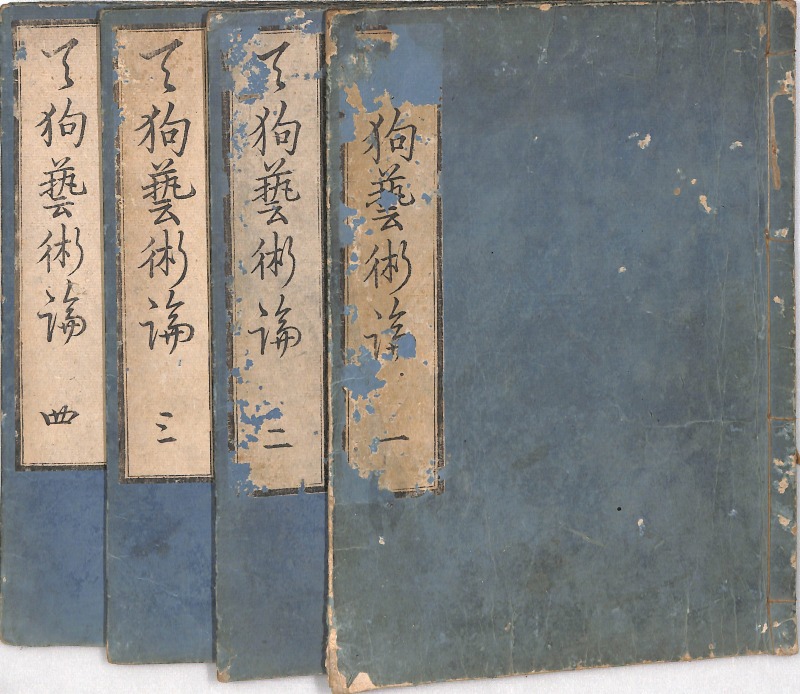 狗藝術論 一
天狗藝術論 二
天狗藝術論 三
天狗藝術論 四